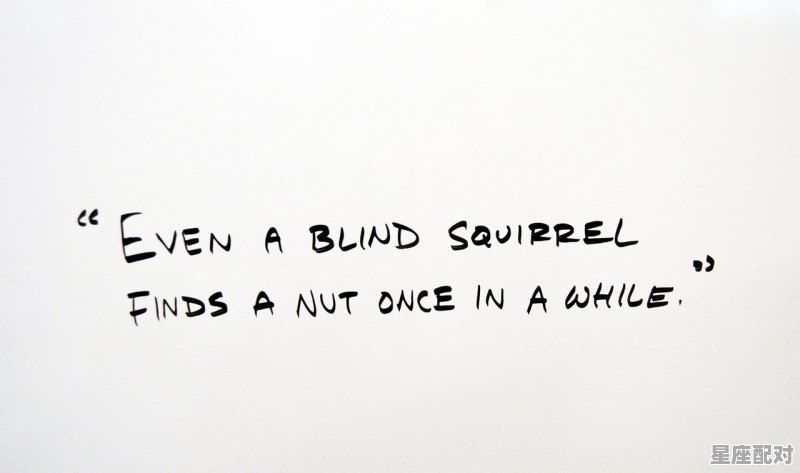 “EVEN A BLIND SQUIRREL
FINDS A NUT ONCE IN A WHILE.”
星座配对